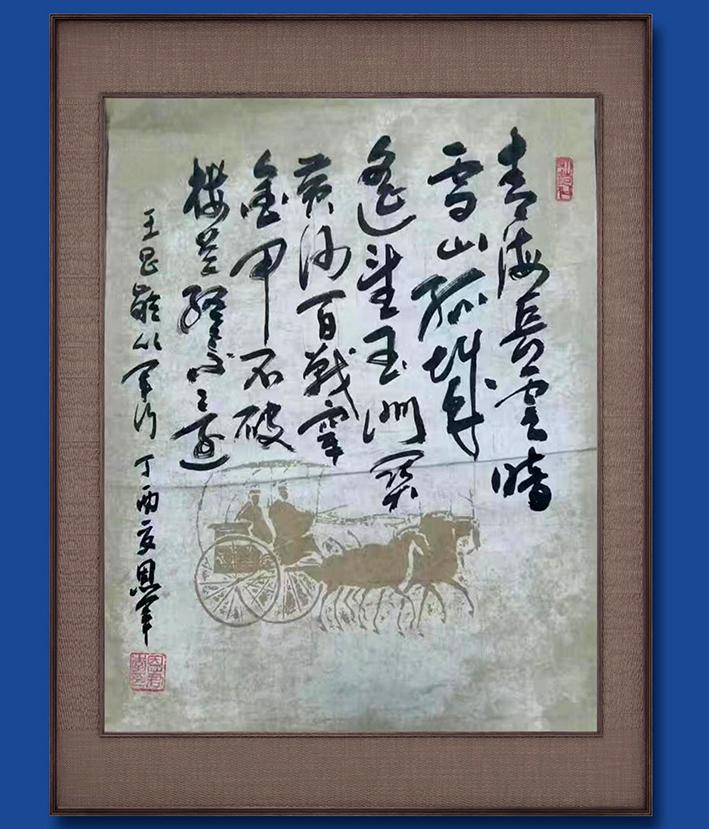 青海長雲暗
雪山孤城
遙望玉關
黄沙百戰穿
金甲不破
樓蘭終不還
王昌齡從軍行 丁酉夏恩軍